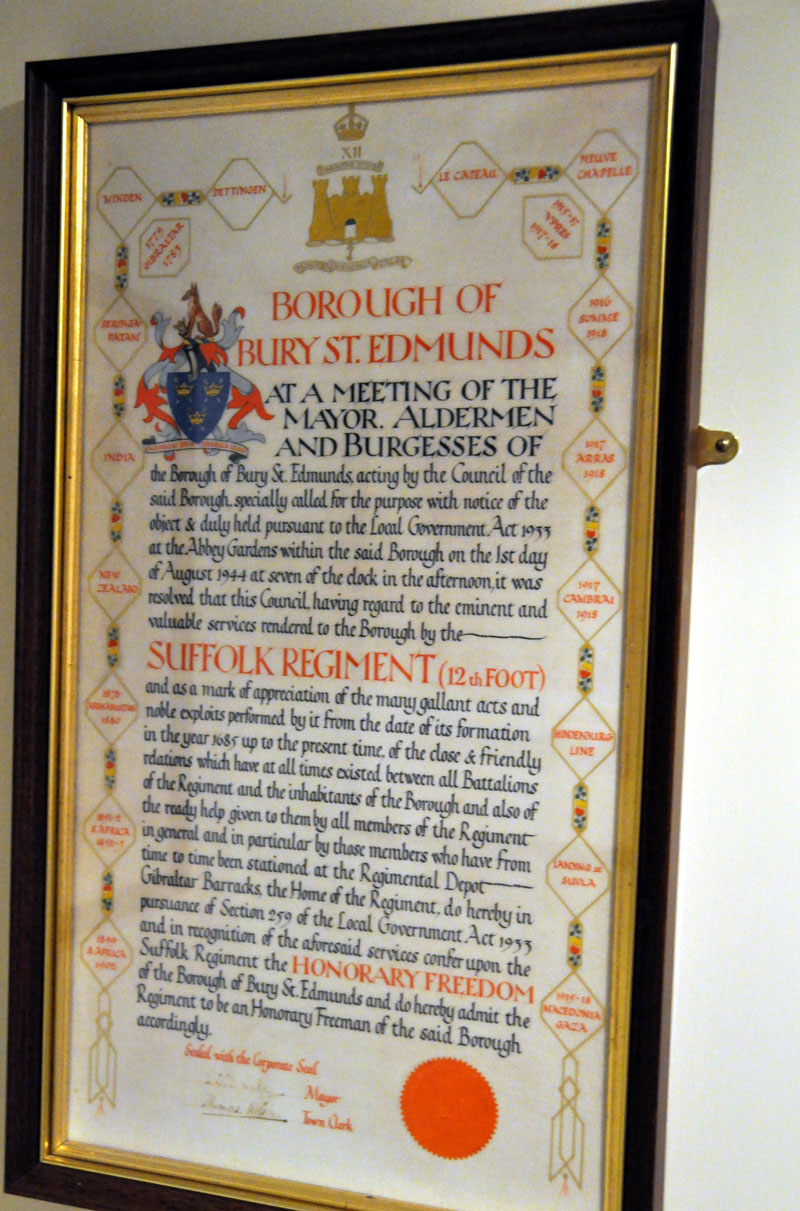 XII
MINDEN
DETTINGEN
LE CATEAU
NEUVE
CHAPELLE
1779
GIBRALTAR
1783
1915-17
YPRES
1917-18
SERINGA-
PATAN
1916
SOMME
1918
INDIA
1917
ARRAS
1918
NEW
ZEALAND
1917
CAMBRAI
1918
1878-
AFGHANISTAN
1880
HINDENBURG
LINE
1851-2
S.AFRICA
LANDING at
SUVLA
1899
S.AFRICA
1902
1915-18
MACEDONIA
GAZA
BOROUGH OF
BURY ST. EDMUNDS
AT A MEETING OF THE
MAYOR, ALDERMEN
AND BURGESSES OF
the Borough of Bury St. Edmunds, acting by the Council of the
said Borough, specially called for the purpose with notice of the
object & duly held pursuant to the Local Government Act 1933
at the Abbey Gardens within the said Borough on the 1st day
of August 1944 at seven of the clock in the afternoon, it was
resolved that this Council, having regard to the eminent and
valuable services rendered to the Borough by the
SUFFOLK REGIMENT (12th FOOT)
and as a mark of appreciation of the many gallant acts and
noble exploits performed by it from the date of its formation
in the year 1685 up to the present time, of the close & friendly
relations which have at all times existed between all Battalions
of the Regiment and the inhabitants of the Borough and also of
the ready help given to them by all members of the Regiment
in general and in particular by those members who have from
time to time been stationed at the Regimental Depot
Gibraltar Barracks, the Home of the Regiment, do hereby in
pursuance of Section 259 of the Local Government Act 1933
and in recognition of the aforesaid services confer upon the
Suffolk Regiment the HONORARY FREEDOM
of the Borough of Bury St. Edmunds and do hereby admit the
Regiment to be an Honorary Freeman of the said Borough
accordingly.
Sealed with the Corporate Seal
Mayor
Town Clerk